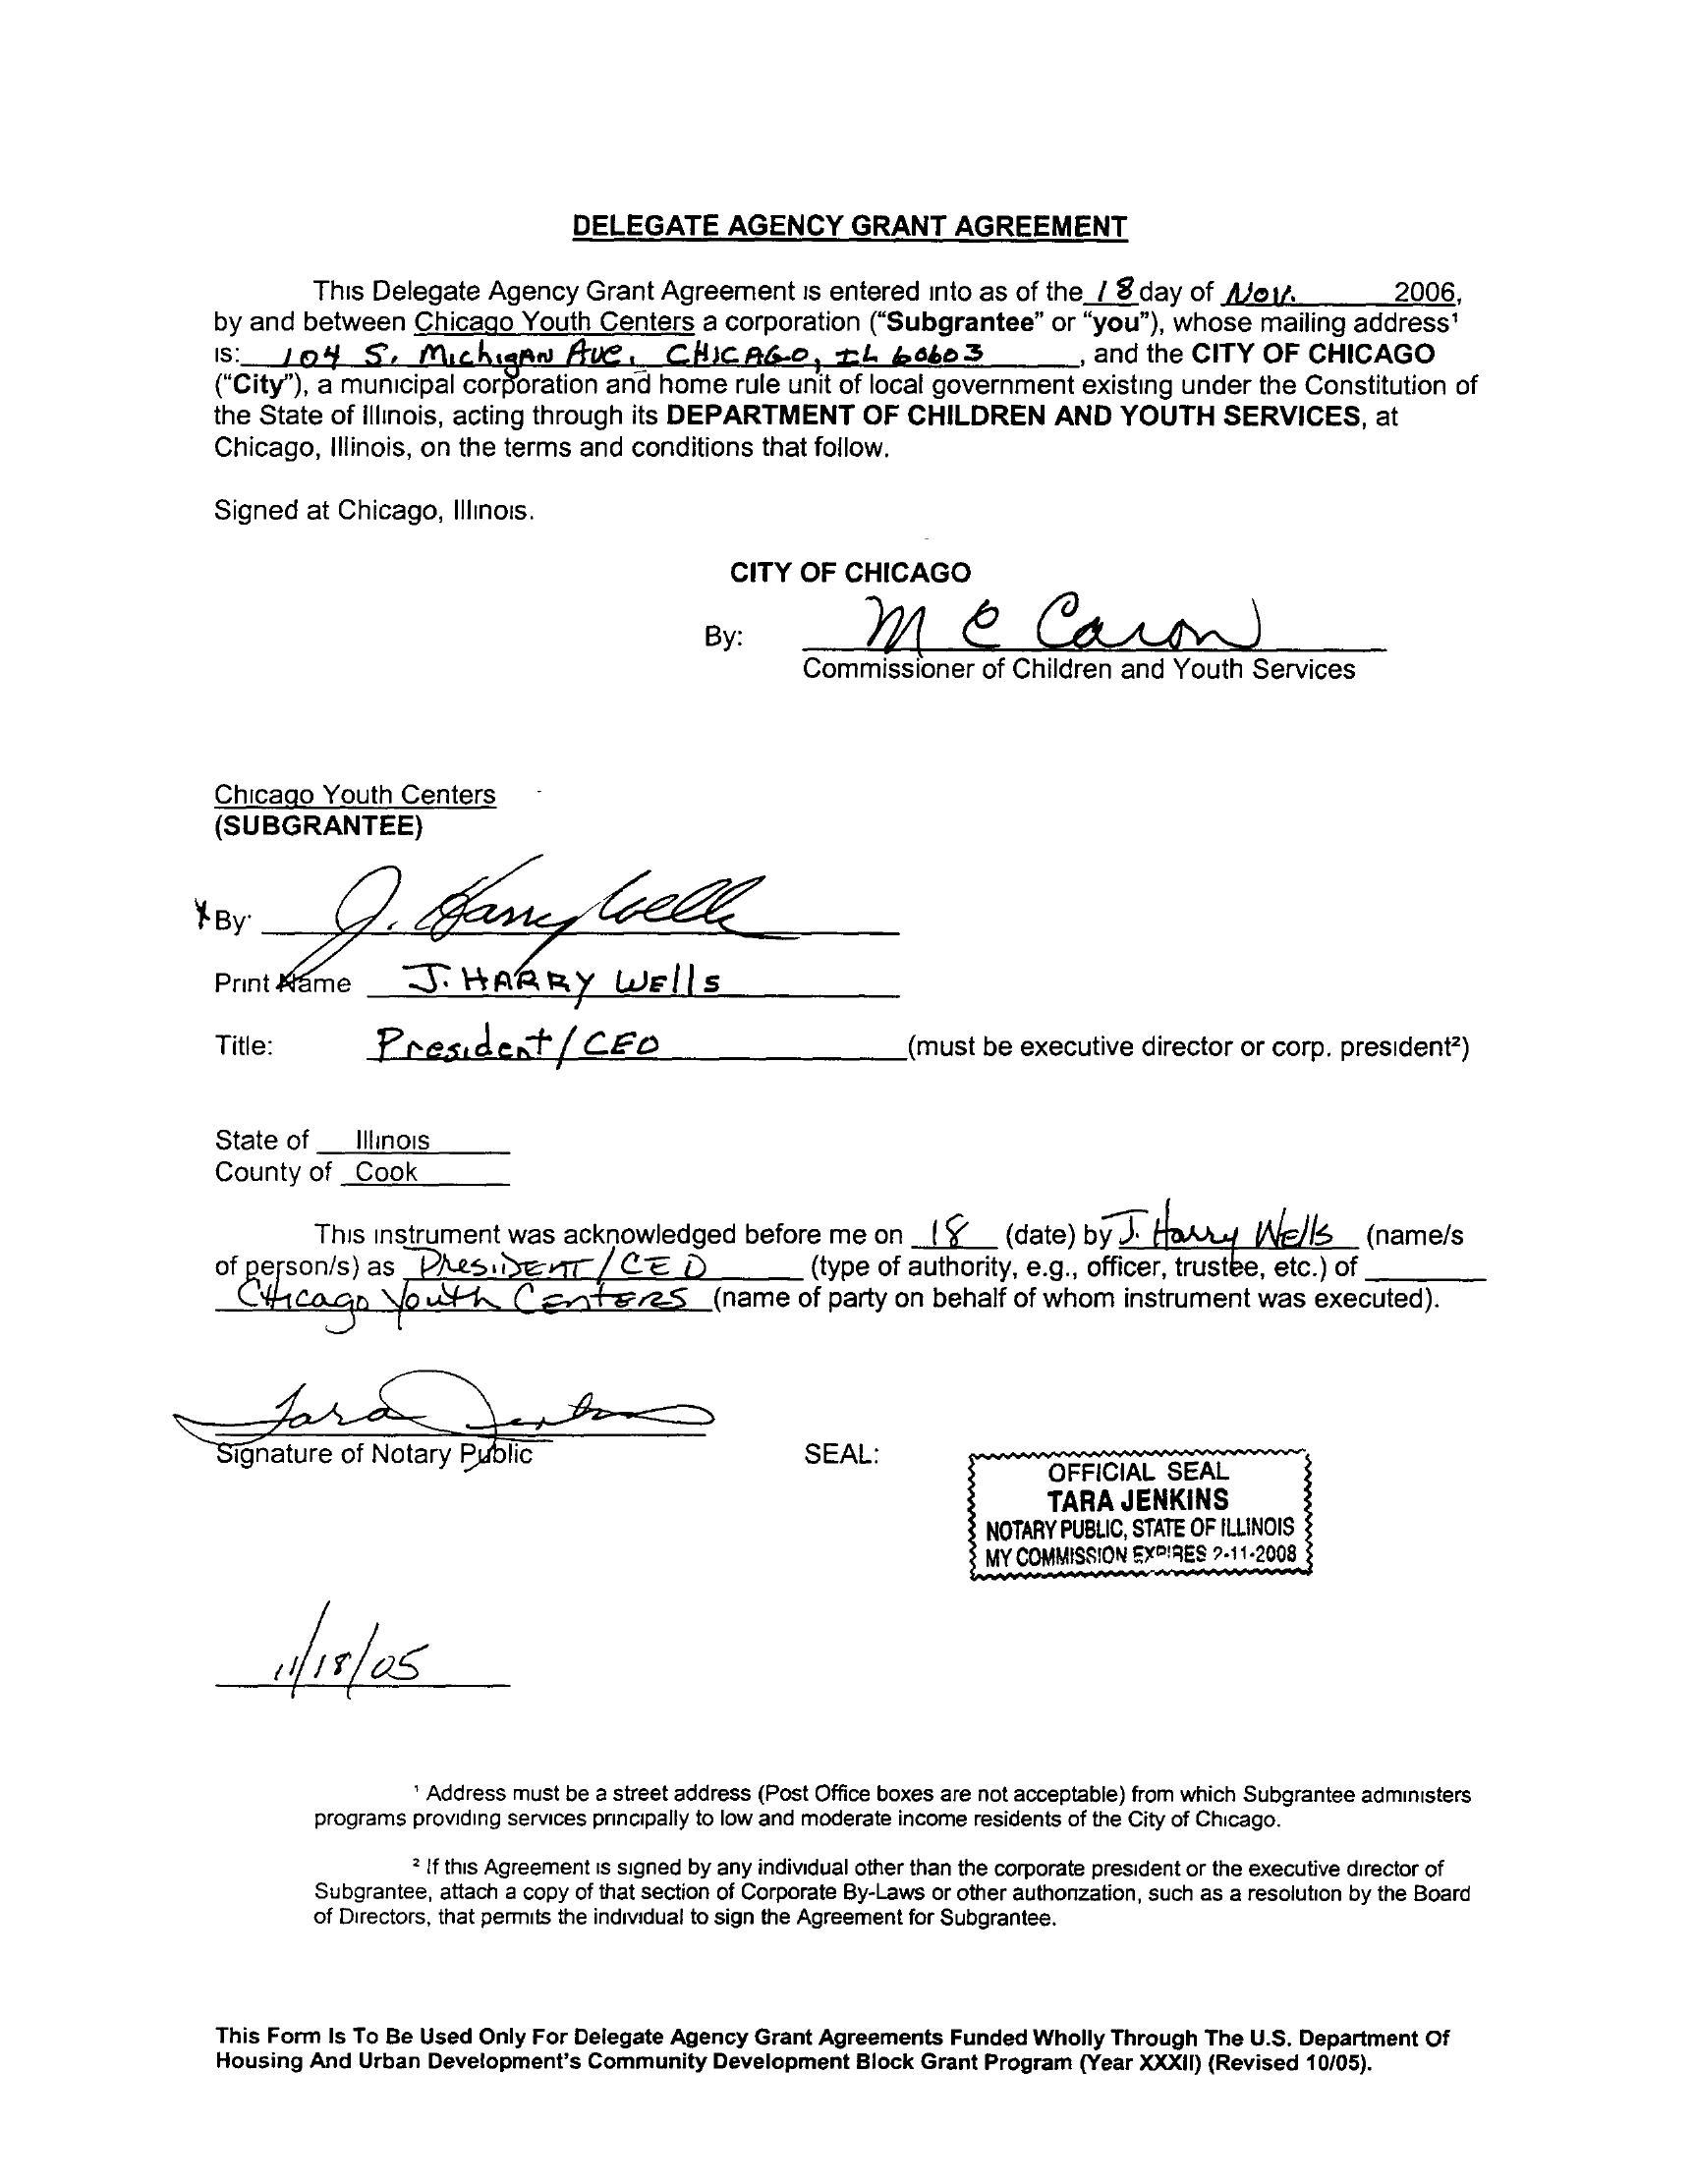 DELEGATE AGENCY GRANT AGREEMENT
This Delegate Agency Grant Agreement is entered into as of the 18 day of Nov. 2006,
by and between Chicago Youth Centers a corporation (“Subgrantee” or “you”), whose mailing address¹
is: 104 S. Michigan Ave, CHICAGO, IL 60603, and the CITY OF CHICAGO
(“City”), a municipal corporation and home rule unit of local government existing under the Constitution of
the State of Illinois, acting through its DEPARTMENT OF CHILDREN AND YOUTH SERVICES, at
Chicago, Illinois, on the terms and conditions that follow.
Signed at Chicago, Illinois.
CITY OF CHICAGO
By: M E Caron
Commissioner of Children and Youth Services
Chicago Youth Centers
(SUBGRANTEE)
By: J. Harry Wells
Print Name J. HARRY WElls
Title: President/CEO (must be executive director or corp. president²)
State of Illinois
County of Cook
This instrument was acknowledged before me on 18 (date) by J. Harry Wells (name/s
of person/s) as PresiDENT/CEO (type of authority, e.g., officer, trustee, etc.) of
CHicago Youth CENtERS (name of party on behalf of whom instrument was executed).
Tara Jenkins
Signature of Notary Public SEAL:
OFFICIAL SEAL
TARA JENKINS
NOTARY PUBLIC, STATE OF ILLINOIS
MY COMMISSION EXPIRES 2-11-2008
11/18/05
¹ Address must be a street address (Post Office boxes are not acceptable) from which Subgrantee administers
programs providing services principally to low and moderate income residents of the City of Chicago.
² If this Agreement is signed by any individual other than the corporate president or the executive director of
Subgrantee, attach a copy of that section of Corporate By-Laws or other authorization, such as a resolution by the Board
of Directors, that permits the individual to sign the Agreement for Subgrantee.
This Form Is To Be Used Only For Delegate Agency Grant Agreements Funded Wholly Through The U.S. Department Of
Housing And Urban Development's Community Development Block Grant Program (Year XXXII) (Revised 10/05).